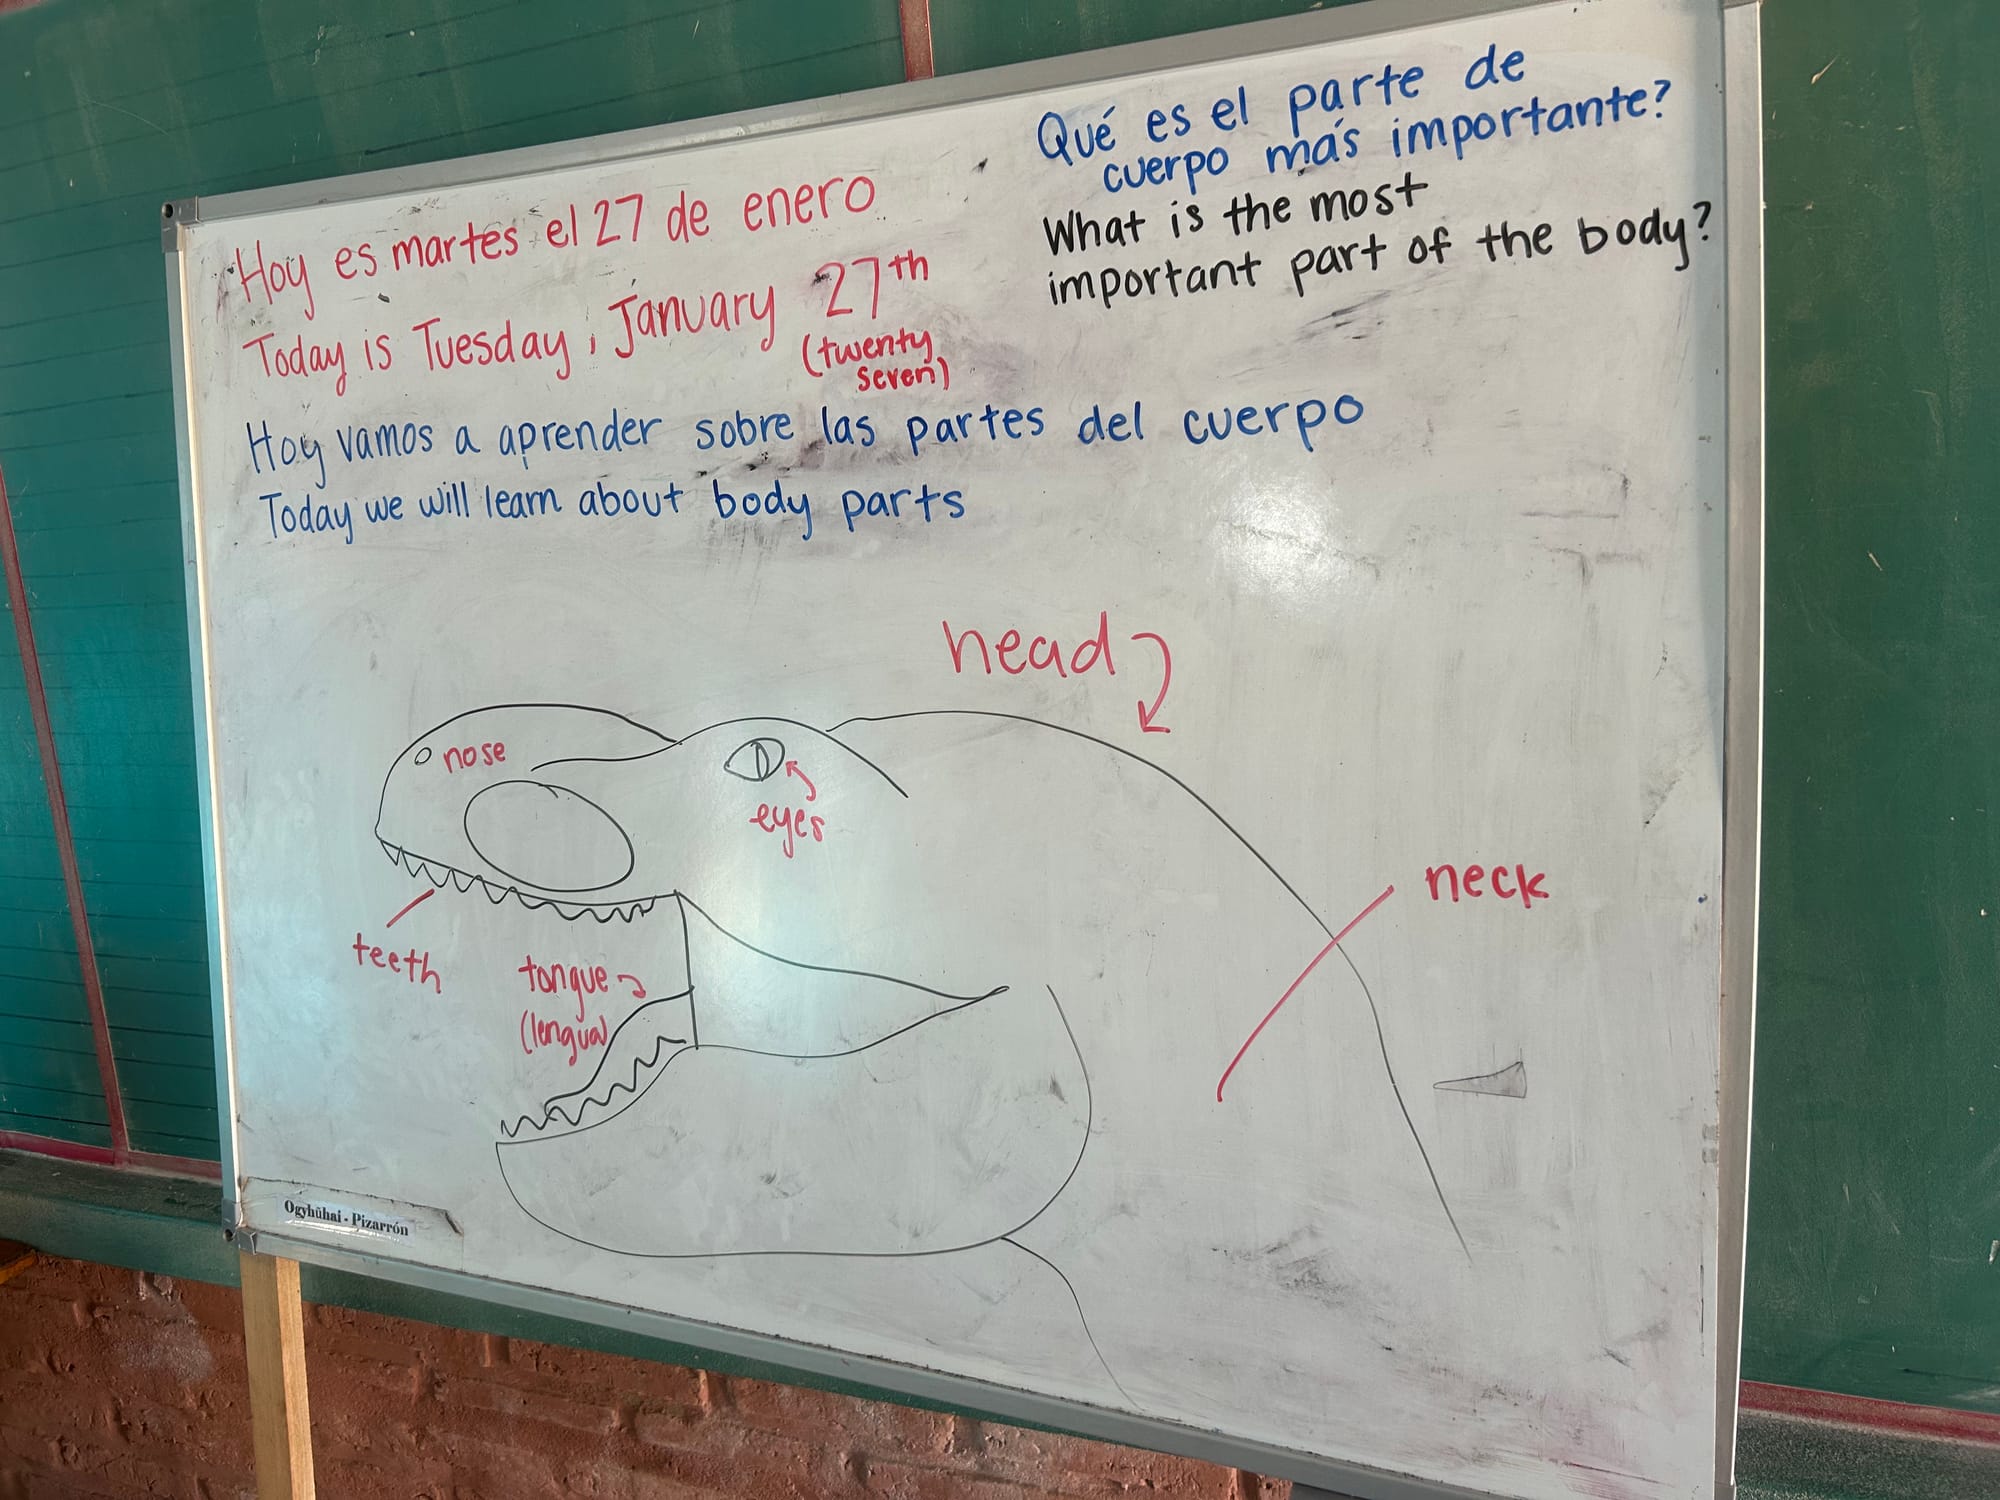 Hoy es martes el 27 de enero
Today is Tuesday, January 27th
(twenty
seven)
Qué es el parte de
cuerpo más importante?
What is the most
important part of the body?
Hoy vamos a aprender sobre las partes del cuerpo
Today we will learn about body parts
head
nose
eyes
neck
teeth
tongue
(lengua)
Ogyhũhai - Pizarrón